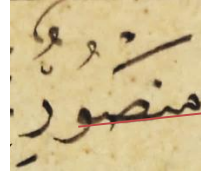 منصور